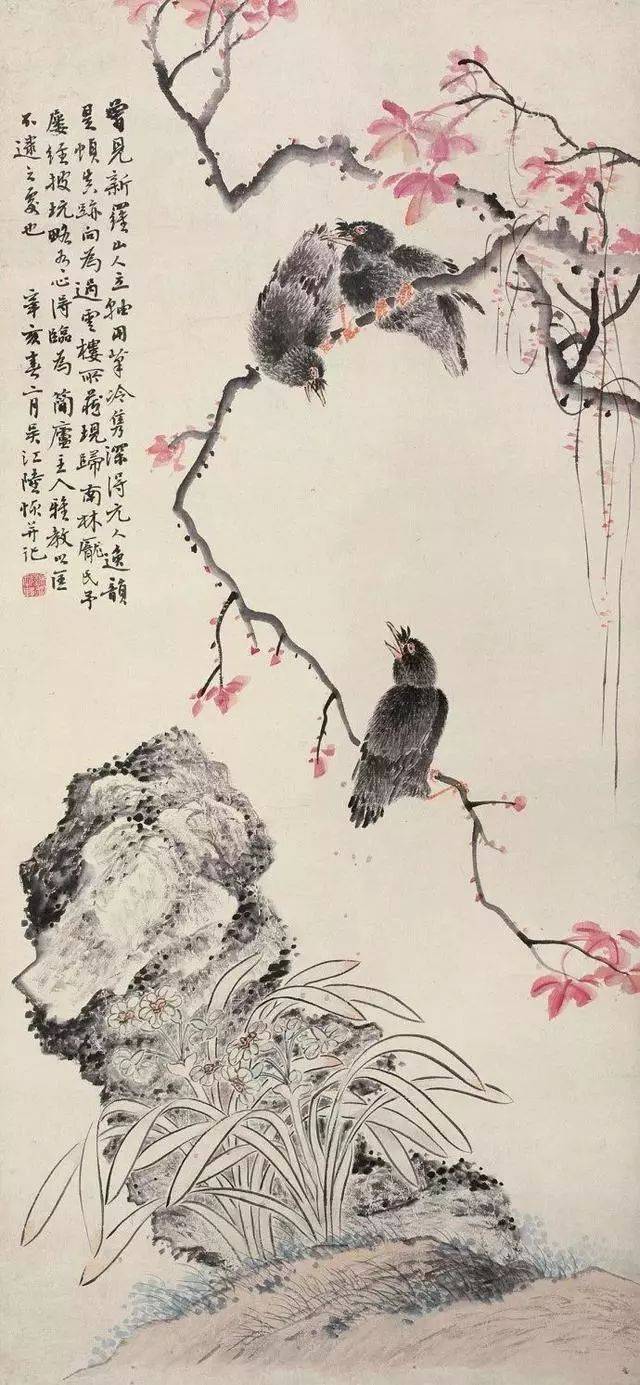 曾見新羅山人立軸用筆冷雋深得元人逸韻
是幀真跡向為過雲樓所藏現歸南林龐氏予
屢經披玩略有心得臨為簡廬主人雅教以匡
不逮之處也
辛亥春二月吳江陸恢并記